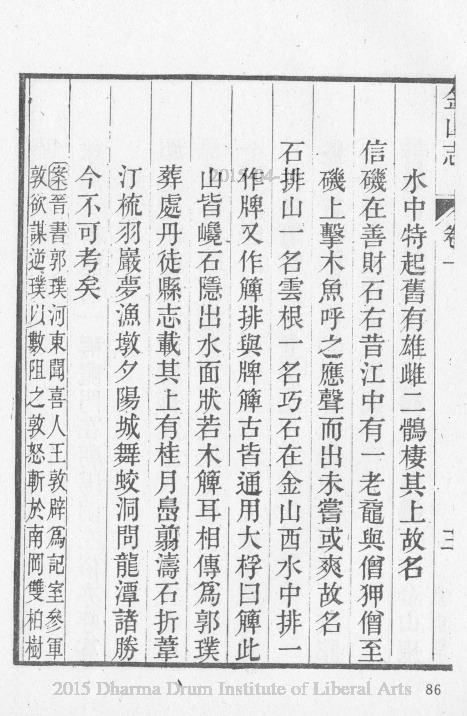 金山志
卷一
水中特起舊有雄雌二鶻棲其上故名
信磯在善財石右昔江中有一老黿與僧狎僧至
磯上擊木魚呼之應聲而出未嘗或爽故名
石排山一名雲根一名巧石在金山西水中排一
作牌又作簰排與牌簰古皆通用大桴曰簰此
山皆巉石隱出水面狀若木簰耳相傳為郭璞
葬處丹徒縣志載其上有桂月島翦濤石折葦
汀梳羽巖夢漁墩夕陽城舞蛟洞問龍潭諸勝
今不可考矣
案晉書郭璞河東聞喜人王敦辟為記室參軍
敦欲謀逆璞以數阻之敦怒斬於南岡雙柏樹
2015 Dharma Drum Institute of Liberal Arts
86